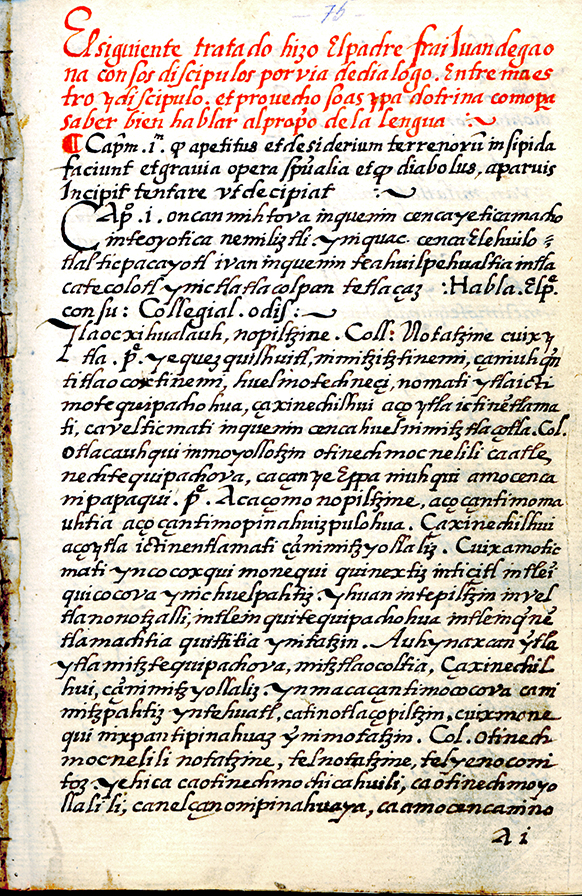 75
El siguiente tratado hizo El padre frai Juan de gao
na con sos discipulos por via de dialogo. Entre maes
tro y discipulo. et provecho soas y pa dotrina como pa
saber bien hablar al propo de la lengua
Capm. 1m. qp apetitus et desiderium terrenoru insipida
faciunt et gravia opera spualia et qp diabolus, aparvis
Incipit tentare vt decipiat
CAp. 1. oncan mihtova in quenin cenca yeticamacho
inteoyotica nemiliztli. yniquac. cenca Elehuilo
tlalticpacayotl ivan inquenin teahuilpehualtia intla
catecolotl ynic tlatlacolpan tetlaçaz : Habla. El pe.
con su: Collegial. o dis:
Tlaocxihualauh, nopiltzine. Coll: Notatzine cuix y
tla. pe. yequezquilhuitl, nimitzitztinemi, çamiuhqn
titlaocoxtinemi, huelmotechneçi, nomati ytla icti
motequipachohua, çaxinechilhui aço ytla ictinetlama
ti, cavelticmati inquenin cencahuelnimitztlaçotla. Col.
otlacauhqui inmoyollotzin otinechmocnelili caatle,
nechtequipachova, caçan ye Eppa niuhqui amocenca
nipapaqui. pe. Acaçomo nopiltzine, aço çantimoma
uhtia aço çantimopinahuizpulohua. Caxinechilhui
aço ytla ictinentlamati çanimitzyollaliz. Cuixamotic
mati yncocoxqui monequi quinextiz inticitl intlei
quicocova ynic huelpahtiz yhuan intepiltzin invel
tlanonotzalli, intlein quitequipachohua intlein qne
tlamachtia quittitia ynitatzin. Auh ynaxcan ytla
ytla mitztequipachova, mitztlaocoltia, Caxinechil
hui, çanimitzyollaliz ynmacaçantimococova cani
mitzpahtiz yntehuatl, catinotlaçopiltzin, cuixmone
qui mixpantipinahuaz ynimotatzin. Col. otinech
mocnelili notatzine, telnotatzine, telyenoconi
toz yehica caotinechmochicahuili, caotinechmoyo
llalili, canelçanompinahuaya, caamocencanino
A i